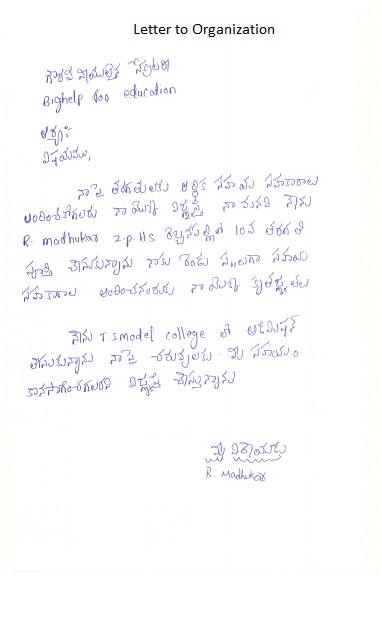 Letter to Organization
గౌరవనీయులైన
Bighelp for education
విషయము,
నా పై తరగతులకు ఆర్థిక సహాయ సహకారాలు
అందించగలరు నా యొక్క విజ్ఞప్తి నా మనవి నేను
R. madhukar z.p.H.s 10వ తరగతి
పూర్తి చేసుకున్నాను నాకు రెండు సహాయ
సహకారాలు అందించినందుకు నా యొక్క కృతజ్ఞతలు
నేను T.S model college లో అడ్మిషన్
తీసుకున్నాను నా పై చదువులకు మీ సహాయం
కొనసాగించగలరని విజ్ఞప్తి చేస్తున్నాను
R. Madhukar